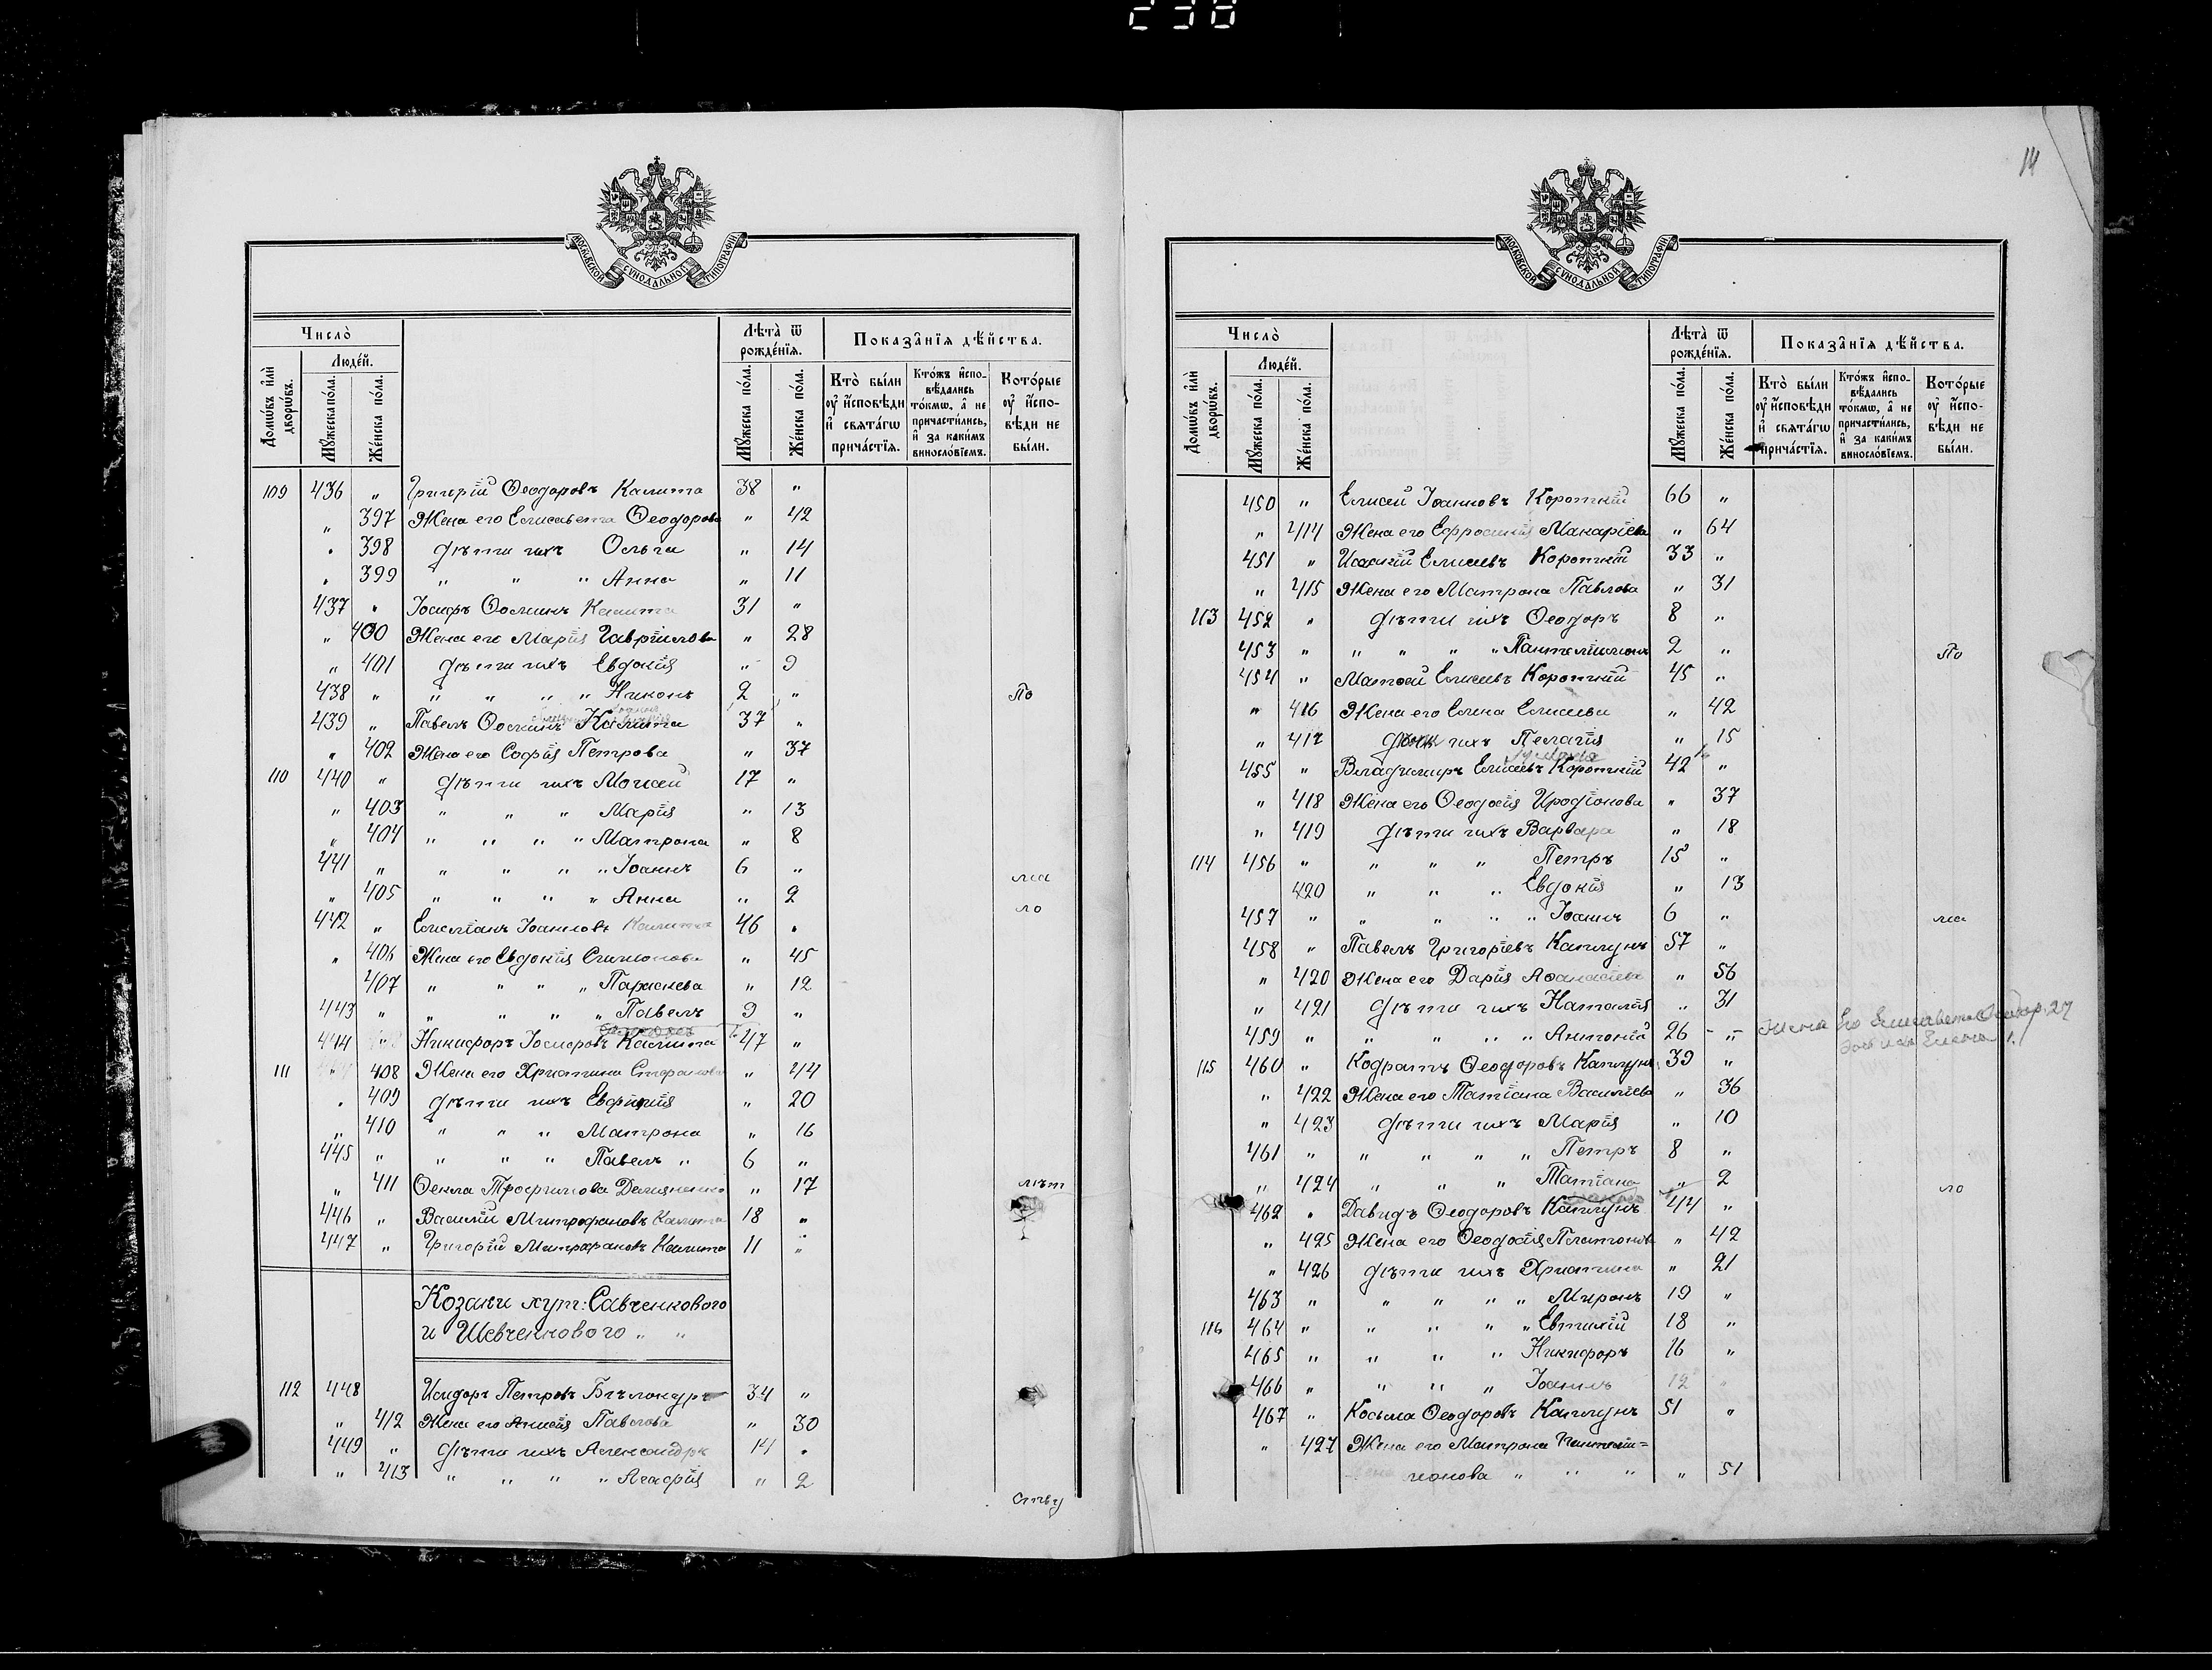 238
14
МОСКОВСКОЙ СѴНОДАЛЬНОЙ ТИПОГРАФІИ
Число̀
Люде́й.
Домѡ́въ и҆лѝ дворѡ́въ.
Мꙋ́жеска по́ла.
Же́нска по́ла.
Лѣта̀ ѿ рожде́нїѧ.
Мꙋ́жеска по́ла.
Же́нска по́ла.
Показа̑нїѧ дѣ́йства.
Кто̀ бы́ли оу҆ и҆́сповѣди и҆ свѧта́гѡ прича́стїѧ.
Кто́жъ и҆спо-вѣ́дались то́кмѡ, а҆ не причасти́лись, и҆ за каки́мъ виносло́вїемъ.
Кото́рые оу҆ и҆́спо-вѣди не бы́ли.
109 436 " Григорій Ѳеодоровъ Калита 38 "
" 397 Жена его Елисавета Ѳеодорова " 42
" 398 дѣти ихъ Ольга " 14
" 399 " " " Анна " 11
437 " Іосифъ Ѳоминъ Калита 31 "
" 400 Жена его Марія Гавріилова " 28
" 401 дѣти ихъ Евдокія " 9
438 " " " " " Никонъ 2 " По
439 " Павелъ Ѳоминъ Калита 37 "
" 402 Жена его Софія Петрова " 37
110 440 " дѣти ихъ Моисей 17 "
" 403 " " " Марія " 13
" 404 " " " " Матрона " 8
441 " " " " " Іоаннъ 6 " ма
" 405 " " " " Анна " 2 ло
442 " Емеліанъ Іоанновъ Калита 46 "
" 406 Жена его Евдокія Симонова " 45
407 " " " " Параскева " 12
443 " " " " " Павелъ 9 "
444 Никифоръ Іосифовъ Калита 47 "
111 " 408 Жена его Христина Стефанова " 44
" 409 дѣти ихъ Евфимія " 20
" 410 " " " Матрона " 16
445 " " " " Павелъ " 6 "
" 411 Ѳекла Трофимова " 17 лѣт
446 " Василій Митрофановъ Калита 18 "
447 " Григорій Митрофановъ Калита 11 "
Козаки хут: Савченкового
и Шевченкового " "
112 448 Исидоръ Петровъ Бѣлокуръ 34 "
" 412 Жена его Анисія Павлова " 30
449 " дѣти ихъ Александръ 14 "
" 413 " " " " Агафія " 2
ству
МОСКОВСКОЙ СѴНОДАЛЬНОЙ ТИПОГРАФІИ
Число̀
Люде́й.
Домѡ́въ и҆лѝ дворѡ́въ.
Мꙋ́жеска по́ла.
Же́нска по́ла.
Лѣта̀ ѿ рожде́нїѧ.
Мꙋ́жеска по́ла.
Же́нска по́ла.
Показа̑нїѧ дѣ́йства.
Кто̀ бы́ли оу҆ и҆́сповѣди и҆ свѧта́гѡ прича́стїѧ.
Кто́жъ и҆спо-вѣ́дались то́кмѡ, а҆ не причасти́лись, и҆ за каки́мъ виносло́вїемъ.
Кото́рые оу҆ и҆́спо-вѣди не бы́ли.
450 " Елисей Іоанновъ Короткій 66 "
" 414 Жена его Ефросинія Макаріева " 64
451 " Елисеевъ Короткій 33 "
" 415 Жена его Матрона Павлова " 31
113 452 " дѣти ихъ Ѳеодоръ 8 "
453 " " " " " Пантелеимонъ 2 " По
454 " Матѳей Елисеевъ Короткій 45 "
" 416 Жена его Елена Елисеева " 42
" 417 ихъ Пелагія " 15
455 " Владимиръ Елисеевъ Короткій 42 "
" 418 Жена его Ѳеодосія Иродіонова " 37
" 419 дѣти ихъ Варвара " 18
114 456 " " " " Петръ 15 "
420 " " " Евдокія " 13
457 " " " " " Іоаннъ 6 " ма
458 " Павелъ Григоріевъ Каплунъ 57 "
" 420 Жена его Дарія Аѳанасіева " 56
" 421 дѣти ихъ Наталія " 31
459 " " " " " Антоній 26 - " - Жена Его Елисавета Ѳеодор. 27
115 460 " Кодратъ Ѳеодоровъ Каплунъ 39 "
" 422 Жена его Татіана Василіева " 36
" 423 дѣти ихъ Марія " 10
461 " " " " " Петръ 8 "
" 424 " " " Татіана " 2 ло
462 " Давидъ Ѳеодоровъ Каплунъ 44 "
" 425 Жена его Ѳеодосія Платонова " 42
" 426 дѣти ихъ Христина " 21
463 " " " " " Миронъ 19 "
116 464 " " " " " Евтихій 18 "
465 " " " " Никифоръ 16 "
466 " " " " Іоаннъ 12 "
467 " Косьма Ѳеодоровъ Каплунъ 51 "
" 427 Жена его Матрона Пантелей=
монова " " " " 51